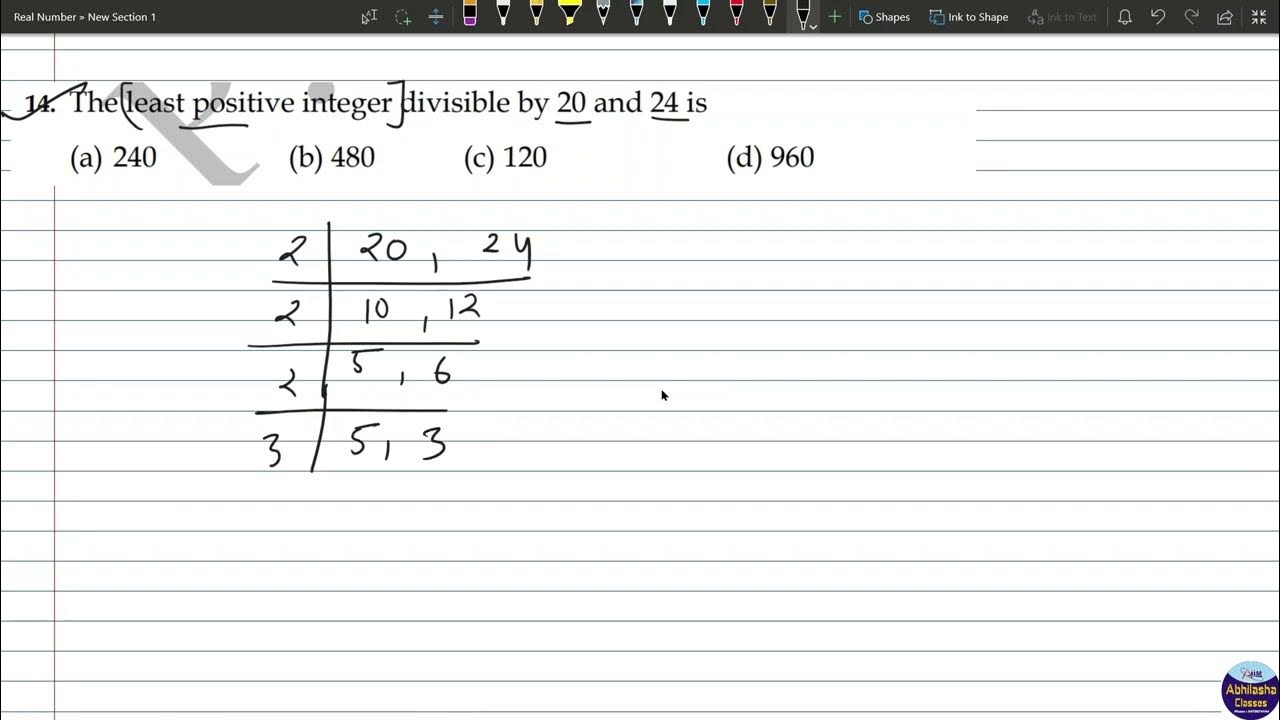 Real Number » New Section 1
Shapes
Ink to Shape
Ink to Text
14. The [least positive integer] divisible by 20 and 24 is
(a) 240 (b) 480 (c) 120 (d) 960
2 | 20, 24
2 | 10, 12
2 | 5, 6
3 | 5, 3
Abhilasha
Classes